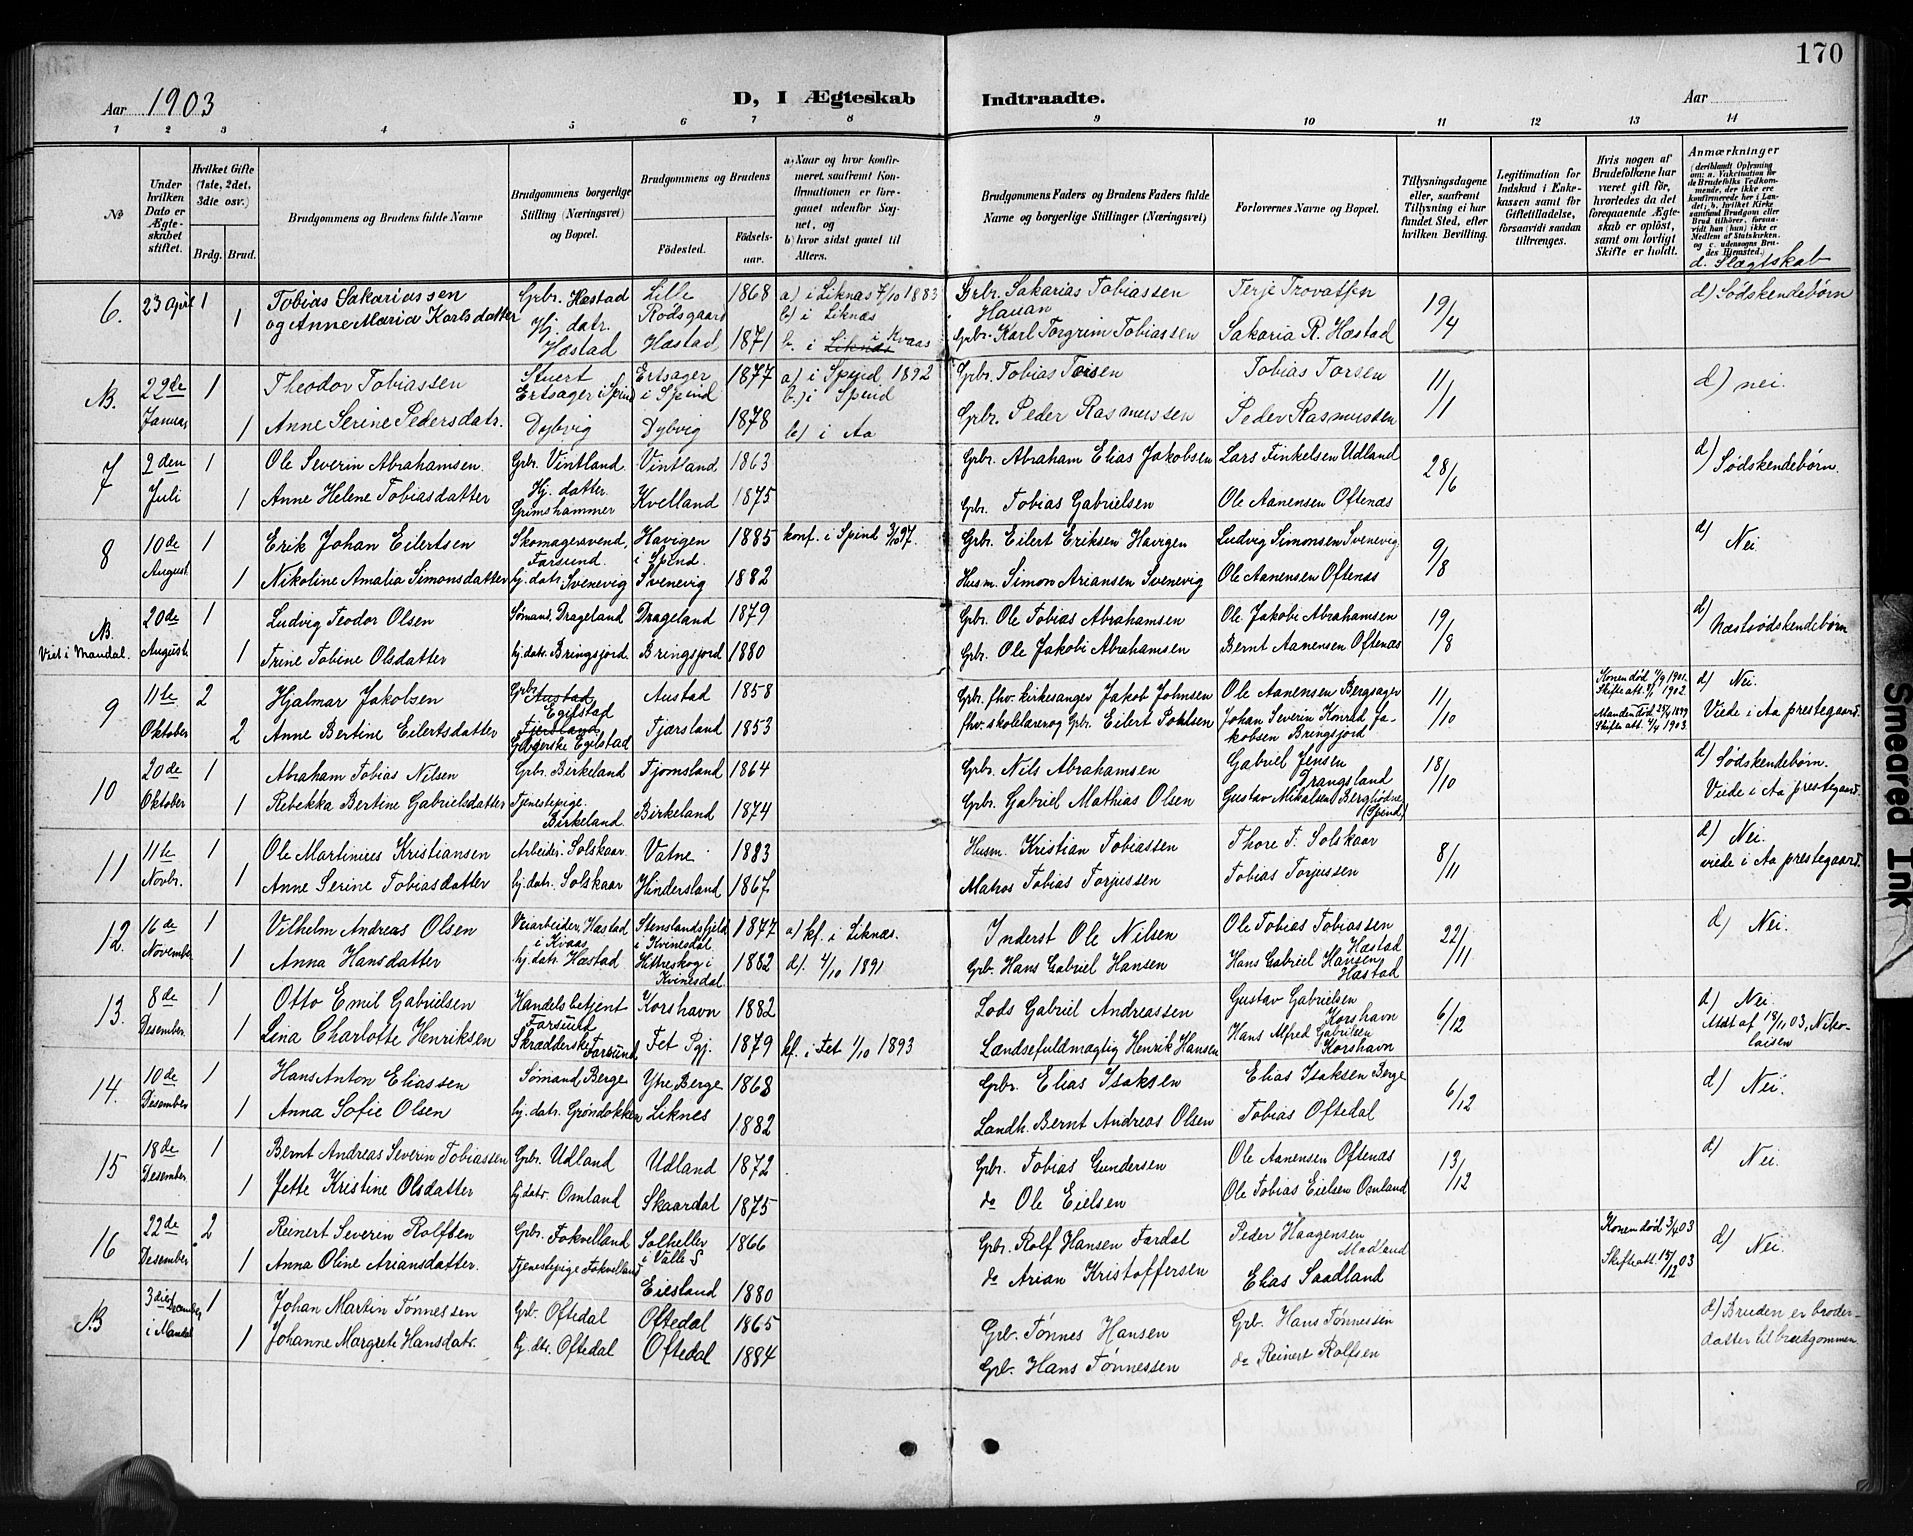 170
Aar 1903
D, I Ægteskab Indtraadte.
Aar
1 2 3 4 5 6 7 8 9 10 11 12 13 14
№
Under hvilken Dato er Ægteskabet stiftet.
Hvilket Gifte (1ste, 2det, 3die osv.)
Brdg. Brud.
Brudgommens og Brudens fulde Navne
Brudgommens borgerlige Stilling (Næringsvei) og Bopæl.
Brudgommens og Brudens
Fødested.
Fødselsaar.
a) Naar og hvor konfirmeret, saafremt Konfirmationen er foregaaet udenfor Sognet, og
b) hvor sidst gaaet til Alters.
Brudgommens Faders og Brudens Faders fulde Navne og borgerlige Stillinger (Næringsvei)
Forlovernes Navne og Bopæl.
Tillysningsdagene eller, saafremt Tillysning ei har fundet Sted, efter hvilken Bevilling.
Legitimation for Indskud i Enkekassen samt for Giftetilladelse, forsaavidt saadan tiltrænges.
Hvis nogen af Brudefolkene har været gift før, hvorledes da det foregaaende Ægteskab er opløst, samt om lovligt Skifte er holdt.
Anmærkninger
(deriblandt Oplysning om: a. Vakcination for de Brudefolks Vedkommende, der ikke ere konfirmerede her i Landet; b. hvilket Kirkesamfund Brudgom eller Brud tilhører, forsaavidt han (hun) ikke er Medlem af Statskirken, og c. udensogns Brudes Hjemsted.)
d. Slægtskab
6. 23 April 1 Tobias Sakariassen Grbr. Hæstad Lille Rødsgaard 1868 a) i Liknæs 7/10 1883 b) i Liknæs Grbr. Sakarias Tobiassen Hauan Terje Trovatsen 19/4 d) Sødskendebørn
1 og Anne Maria Karlsdatter Hj. datr. Hæstad Hæstad 1871 b. i Liknæs i Kvaas Grbr. Karl Torgrim Tobiassen Sakaria R. Hæstad
N.B. 22de Januar 1 Theodor Tobiassen Stuert Ertsager i Spind Ertsager i Spind 1877 a) i Spind 1892 b.) i Spind Grbr. Tobias Torsen Tobias Torsen 11/1 d) nei.
1 Anne Serine Pedersdatr. Dybvig Dybvig 1878 b) i Aa Grbr. Peder Rasmussen Peder Rasmussen
7 9den Juli 1 Ole Severin Abrahamsen. Grbr. Vintland. Vintland 1863 Grbr. Abraham Elias Jakobsen Lars Finkelsen Udland 28/6 d) Sødskendebørn.
1 Anne Helene Tobiasdatter Hj. datter Grimshammer Kvelland 1875 Grbr. Tobias Gabrielsen Ole Aanensen Oftenæs
8 10de August 1 Erik Johan Eilertsen Skomagersvend, Farsund. Havigen i Spind. 1885 konf. i Spind 3/10 97. Grbr. Eilert Eriksen Havigen Ludvig Simonsen Svenevig 9/8 d) Nei
1 Nikoline Amalia Simonsdatter hj. datr. Svenevig Svenevig 1882 Husm. Simon Ariansen Svenevig Ole Aanensen Oftenæs
N.B. Viet i Mandal. 20de August 1 Ludvig Teodor Olsen Sømand, Drageland Drageland 1879 Grbr. Ole Tobias Abrahamsen Ole Jakobi Abrahamsen 19/8 d) Næstsødskendebørn
1 Trine Tobine Olsdatter hj. datr. Bringsjord. Bringsjord 1880 Grbr. Ole Jakobi Abrahamsen Bernt Aanensen Oftenæs
9 11te Oktober 2 Hjalmar Jakobsen Grbr. Austad Egilstad Austad 1858 Grbr. fhv. kirkesanger Jakob Johnsen Ole Aanensen Bergsager 11/10 Konen død 7/9 1901. Skifte att. 1902. d) Nei. Viede i Aa prestegaard.
2 Anne Bertine Eilertsdatter Gbrugerske Egilstad Fjærsland 1853 fhv. skolelærer og Grbr. Eilert Pohlsen Johan Severin Konrad Jakobsen Bringsjord Manden død 1899 Skifte att. 1903.
10 20de Oktober 1 Abraham Tobias Nilsen Grbr. Birkeland Fjomsland 1864 Grbr. Nils Abrahamsen Gabriel Jensen Trangsland 18/10 d) Sødskendebørn. Viede i Aa prestegaard.
1 Rebekka Bertine Gabrielsdatter Tjenestepige. Birkeland. Birkeland 1874 Grbr. Gabriel Mathias Olsen Gustav Mikalsen Bergsødne (Spind)
11 11te Novbr. 1 Ole Martinius Kristiansen Arbeider, Solskaar. Vatne 1883 Husm. Kristian Tobiassen Thore T. Solskaar 8/11 d) Nei. viede i Aa prestegaard.
1 Anne Serine Tobiasdatter hj. datr. Solskaar Hindersland 1867 Matros Tobias Torjussen Tobias Torjussen
12. 16de November 1 Vilhelm Andreas Olsen Veiarbeider, Hæstad i Kvaas Stenslandsfjeld i Kvinesdal 1847 a) kf. i Liknæs. Inderst Ole Nilsen Ole Tobias Tobiassen Hæstad 22/11 d) Nei.
1 Anna Hansdatter hj. datr. Hæstad Hittreskog i Kvinesdal 1882 d). 4/10 1891 Grb. Hans Gabriel Hansen Hans Gabriel Hansen Hæstad
13. 8de Desember. 1 Otto Emil Gabrielsen Handelsbetjent Farsund Korshavn 1882 Lods Gabriel Andreassen Gustav Gabrielsen Korshavn 6/12 d) Nei. Attest af 18/11 03, Nikolaisen
1 Lina Charlotte Henriksen Skrædderske Farsund. Fet Pgj. 1879 kf. i Fet 1/10 1893 Lændsefuldmægtig Henrik Hansen Hans Alfred Gabrilsen Korshavn
14. 10de Desember 1 Hans Anton Eliassen Sømand Berge Ytre Berge 1868 Grbr. Elias Isaksen Elias Isaksen Berge 6/12 d) Nei.
1 Anna Sofie Olsen hj. datr. Grøndokken Liknes 1882 Landh. Bernt Andreas Olsen Tobias Oftedal
15 18de Desember 1 Bernt Andreas Severin Tobiassen Grbr. Udland Udland 1872 Grbr. Tobias Gundersen Ole Aanensen Oftenæs 13/12 d) Nei.
1 Jette Kristine Olsdatter hj. datr. Omland Skaardal 1875 do Ole Eielsen Ole Tobias Eielsen Omland
16 22de Desember 2 Reinert Severin Rolfsen Grbr. Fokvelland Solheller i Valle S 1866 Grbr. Rolf Hansen Fardal Peder Haagensen Madland Konen død 3/4 03 d) Nei.
1 Anna Oline Ariansdatter. Tjenestepige Fokvelland Eiesland 1880 do Arian Kristoffersen Elias Saadland Skifteatt. 15/12 03
N.B 3die Desember i Mandal 1 Johan Martin Tønnessen Grb. Oftedal Oftedal 1865 Grb. Tønnes Hansen Grb. Hans Tønnessen d) Bruden er broderdatter til brudgommen.
1 Johanne Margrete Hansdatr. hj. dtr. Oftedal Oftedal 1884 Grb. Hans Tønnessen do Reinert Rolfsen
Smeared Ink